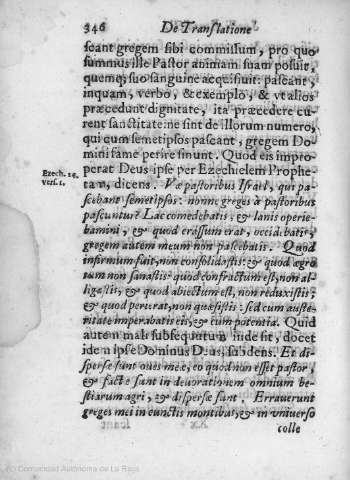 346 De Translatione
scant gregem sibi commissum, pro quo
summus ille Pastor animam suam posuit,
quemq; suo sanguine acquisiuit: pascant,
inquam, verbo, & exemplo, & vt alios
præcedunt dignitate, ita præcedere cu-
rent sanctitate: ne sint de illorum numero,
qui cum semetipsos pascant, gregem Do-
mini fame perire sinunt. Quod eis impro-
perat Deus ipse per Ezechielem Prophe-
Ezech. 34.
vers. 1.
tam, dicens. Væ pastoribus Israel, qui pa-
scebant semetipsos: nonne greges à pastoribus
pascuntur? Lac comedebatis, & lanis operie-
bamini, & quod crassum erat, occidebatis,
gregem autem meum non pascebatis. Quod
infirmum fuit, non consolidastis: & quod ægro
tum non sanastis: quod confractum est, non al-
ligastis, & quod abiectum est, non reduxistis;
& quod perierat, non quæsistis: sed cum auste-
ritate imperabatis eis, & cum potentia. Quid
autem mali subsequutum inde sit, docet
idem ipse Dominus Deus, subdens. Et di-
spersæ sunt oues meæ, eo quod non esset pastor,
& factæ sunt in deuorationem omnium be-
stiarum agri, & dispersæ sunt. Errauerunt
greges mei in cunctis montibus, & in vniuerso
colle
(c) Comunidad Autónoma de La Rioja